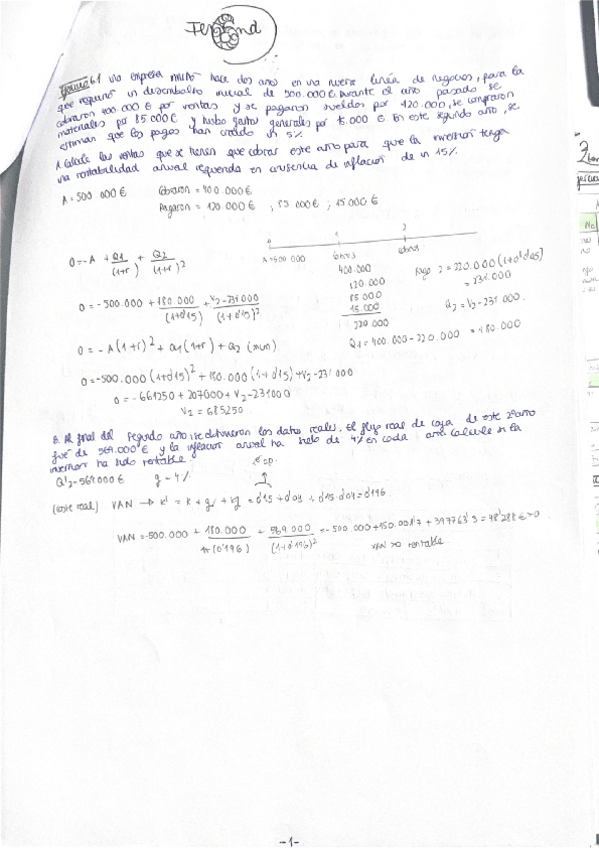 Fernand
Ejercicio 6.1 Una empresa inició hace dos años en una nueva línea de negocios, para la
que requirió un desembolso inicial de 500.000€. Durante el año pasado se
cobraron 400 000 € por ventas y se pagaron sueldos por 120.000, se compraron
materiales por 85 000€ y hubo gastos generales por 15.000 € En este segundo año, se
estiman que los pagos han crecido un 5%
A. Calcule las ventas que se tienen que cobrar este año para que la inversion tenga
una rentabilidad anual requerida en ausencia de inflación de un 15%.
A = 500 000 €
Cobraron = 400.000€
Pagaron = 120 000 € , 85 000€ ; 15.000 €
0 1 2
A=500.000 cobros cobros
400.000
120.000
85 000
15.000
220.000
Pago 2 = 220.000 (1+0'05)
= 231.000
Q2 = V2 - 231 000.
Q1 = 400.000 - 220.000 = 180.000
0 = -A + Q1/(1+r) + Q2/(1+r)²
0 = -500.000 + 180.000/(1+0'15) + V2-231000/(1+0'15)²
0 = -A(1+r)² + Q1(1+r) + Q2
0 = -500.000 (1+0'15)² + 180.000 (1+0'15) + V2 - 231 000
0 = -661250 + 207000 + V2 - 231000
V2 = 685250
B. Al final del segundo año se obtuvieron los datos reales. El flujo real de caja de este 2º año
fue de 569.000 € y la inflacion anual ha sido de 4% en cada año. Calcule si la
inversion ha sido rentable
Q'2 = 569000 € g = 4%
VAN → k' = k + g + kg = 0'15 + 0'04 + 0'15·0'04 = 0'196
VAN = -500.000 + 180.000/1+(0'196) + 569 000/(1+0'196)² = -500.000 + 150.501'7 + 397763'5 = 48'288 € >0
VAN >0 rentable
-1-